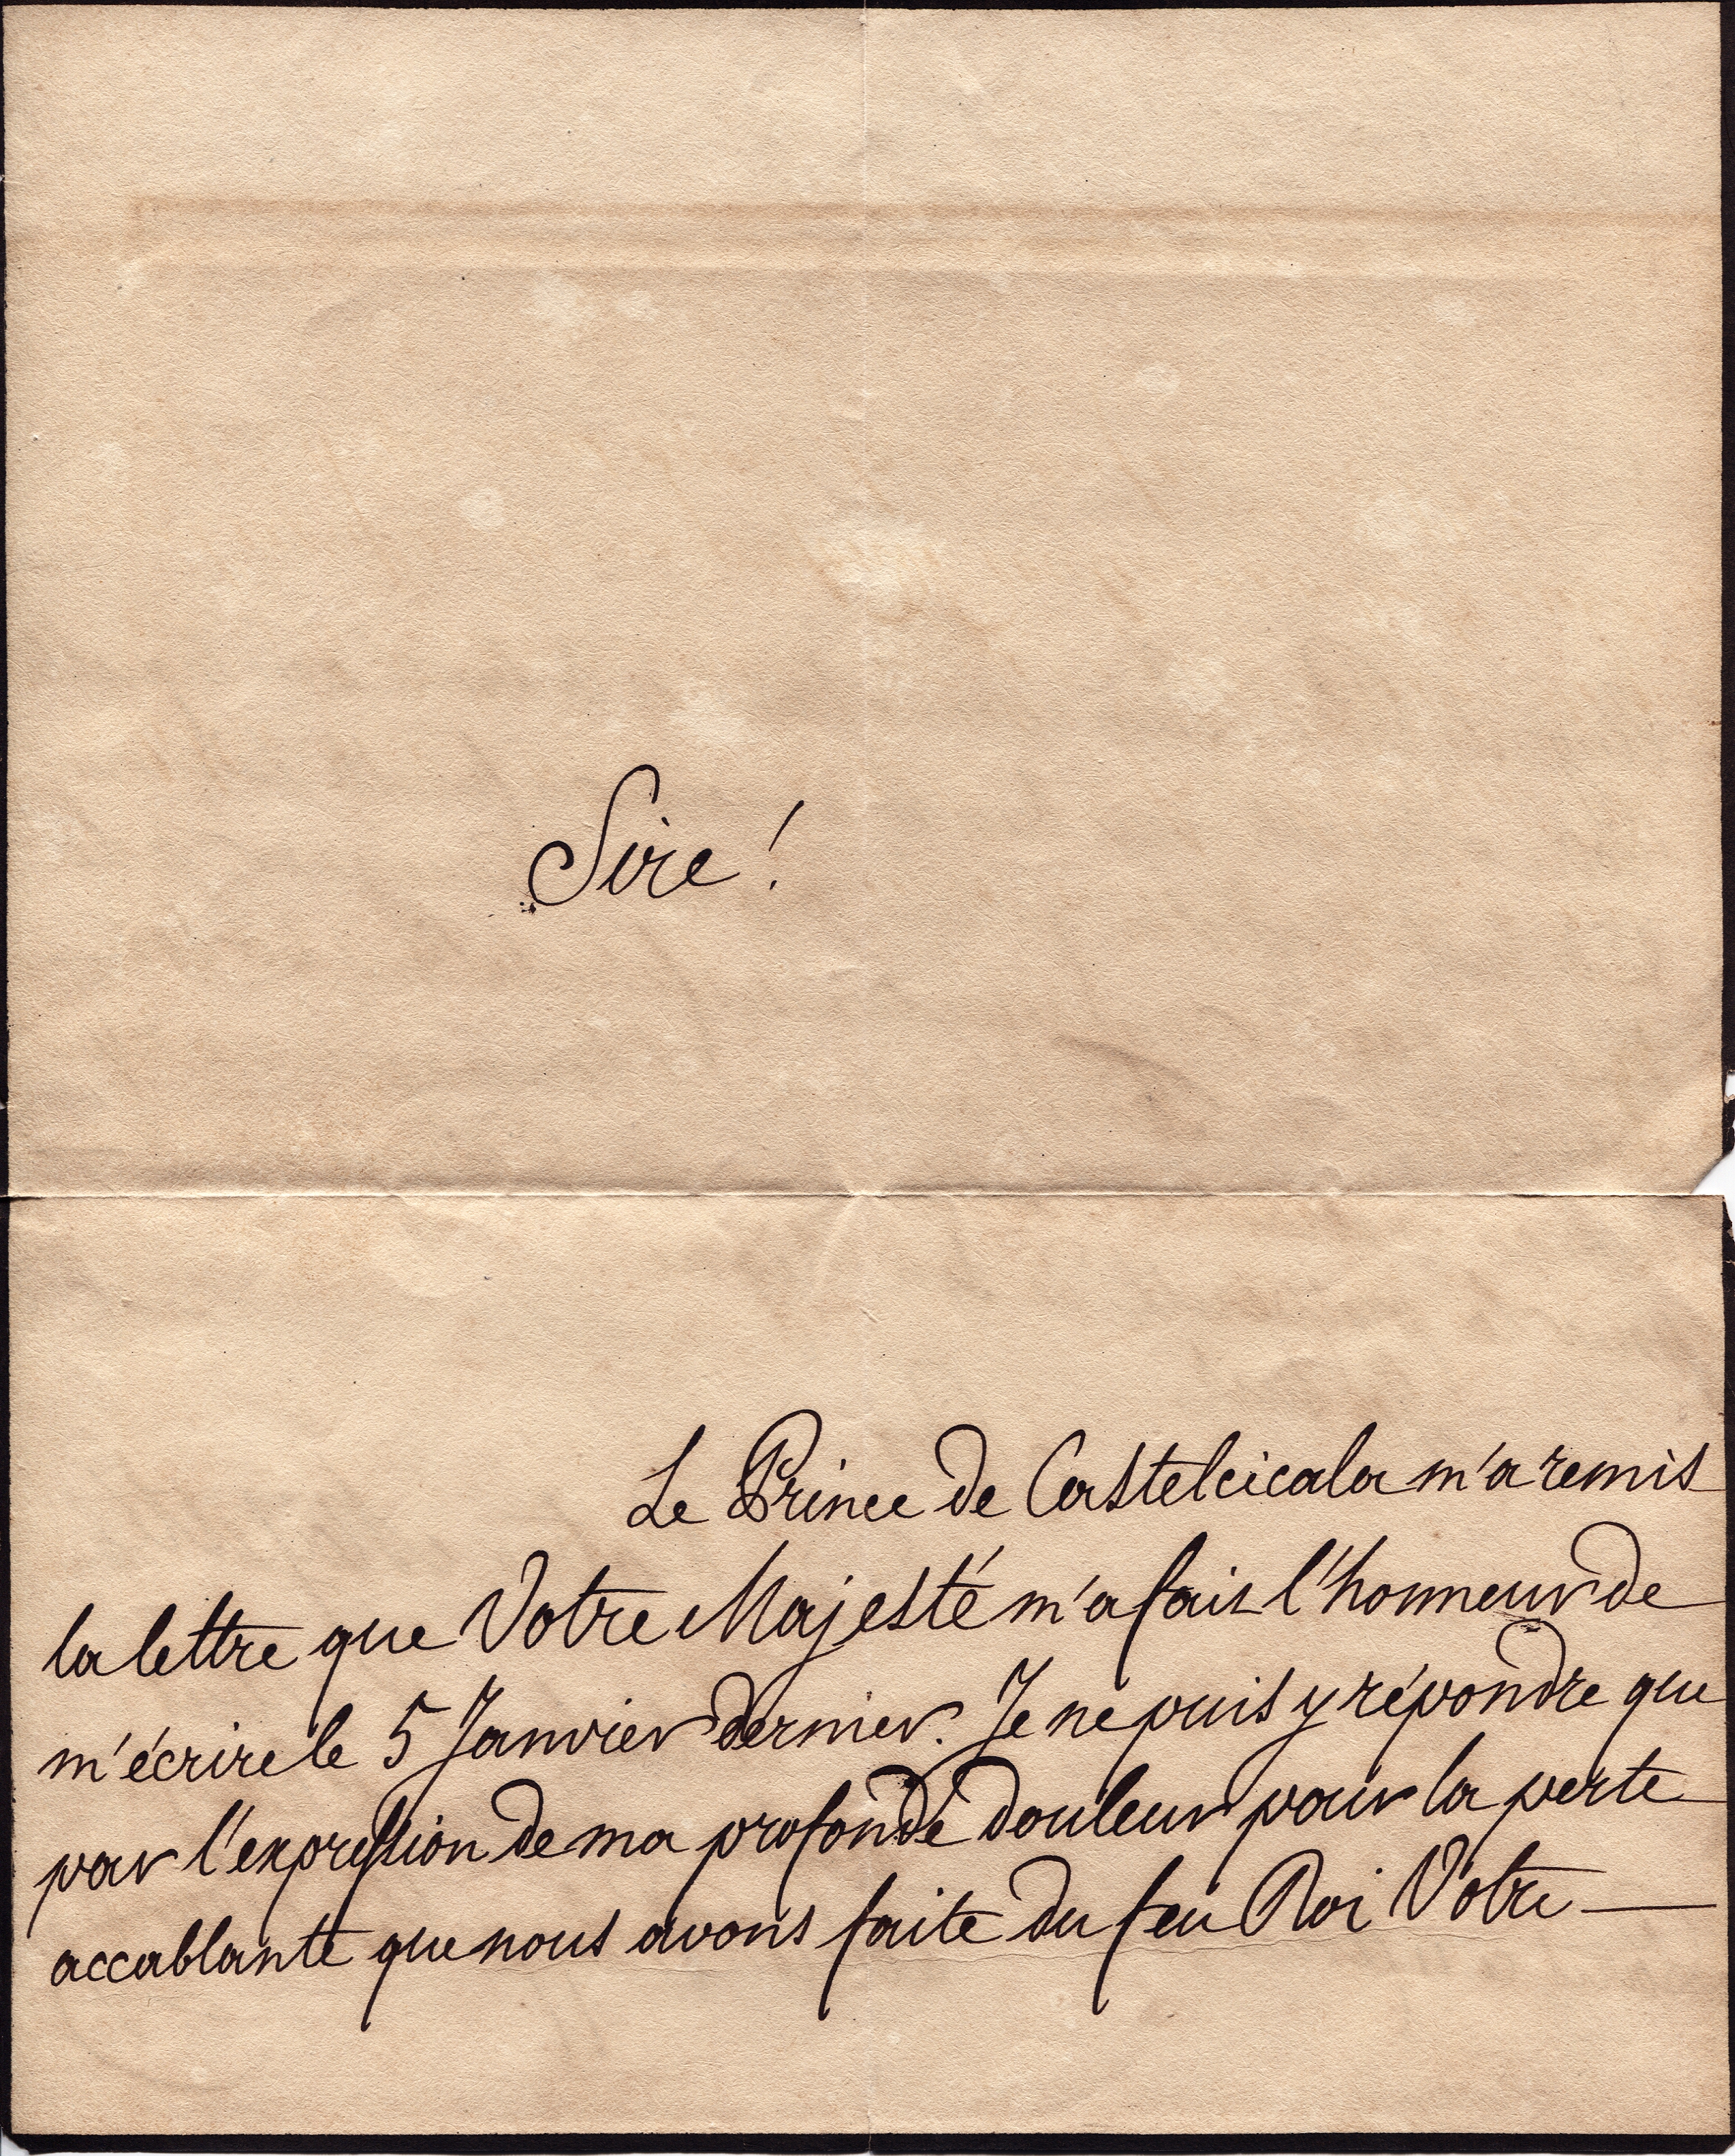 Sire !
Le Prince de Castelcicala m'a remis
la lettre que Votre Majesté m'a fait l'honneur de
m'écrire le 5 Janvier dernier. Je ne puis y répondre que
par l'expression de ma profonde douleur pour la perte
accablante que nous avons faite du feu Roi Votre —